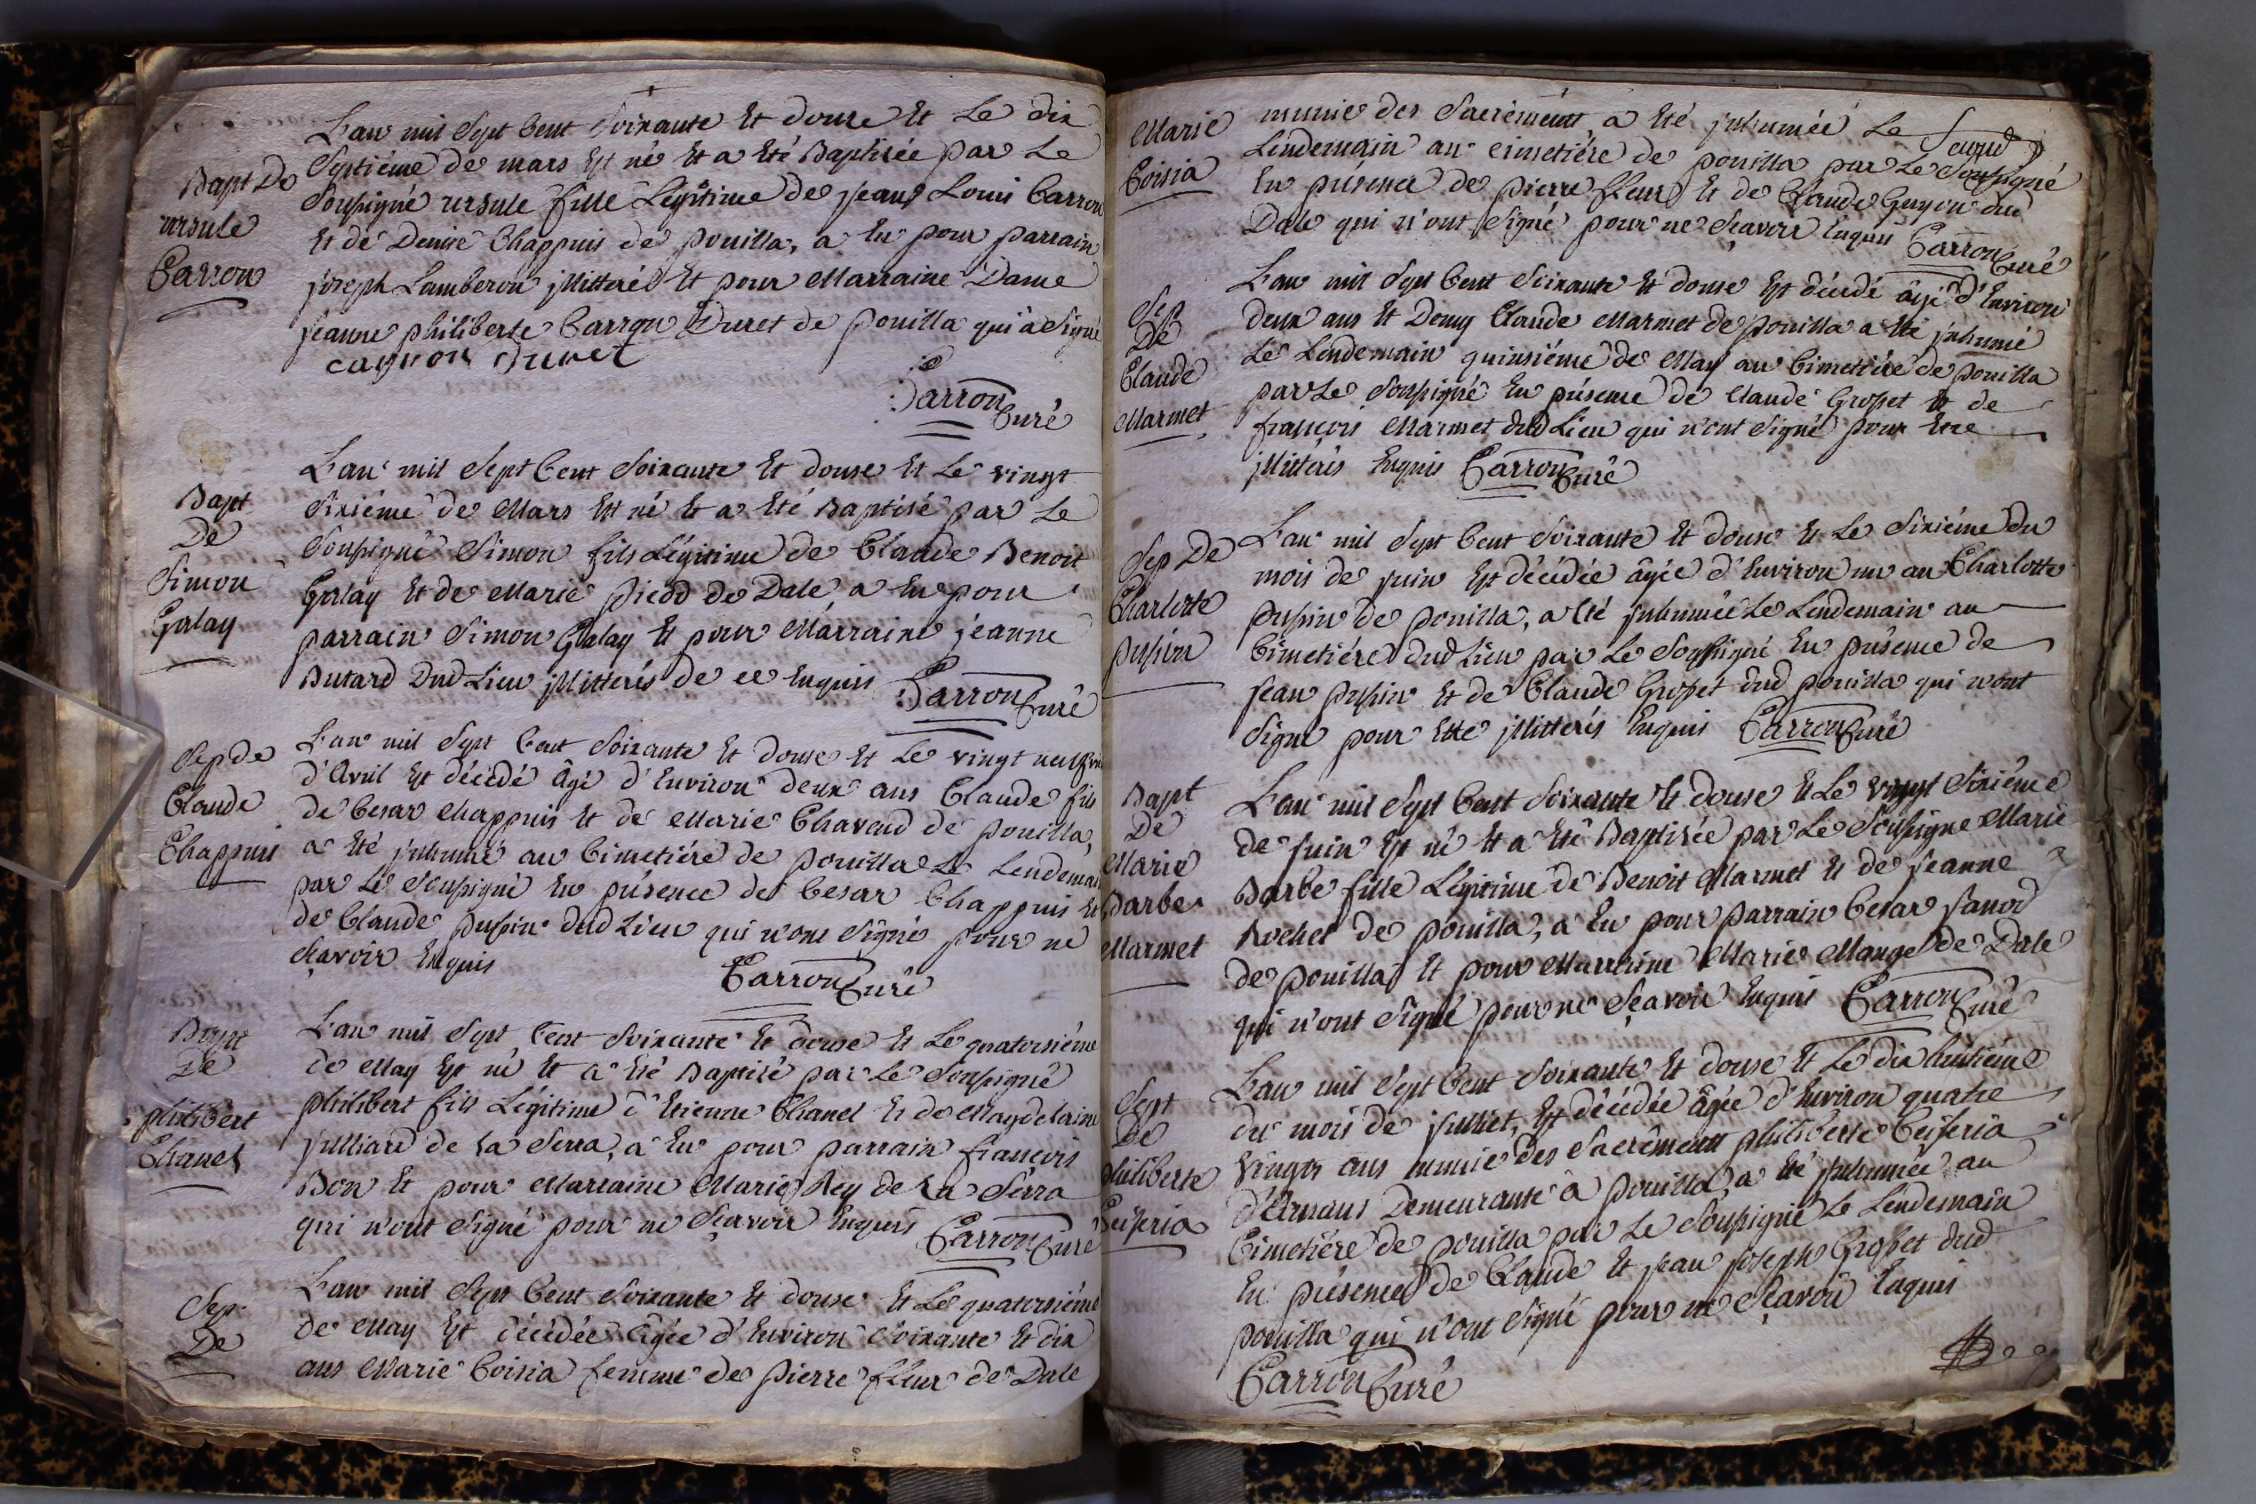 Bapt De
ursule
Carron
L'an mil Sept Cent Soixante Et douse Et Le dix
Septiéme de mars Est né Et a Eté Baptisée par Le
Soussigné ursule fille Légitime de jean Louis Carron
Et de Denise Chappuis de pouilla, a Eu pour parrain
joseph Lamberon illitteré Et pour Marraine Dame
jeanne philiberte Carron Duret de pouilla qui a Signé
carron Duret
Carron
Curé
Bapt
De
Simon
Galay
L'an mil Sept Cent Soixante Et douse Et Le vingt
Sixiéme de Mars Est né Et a Eté Baptisé par Le
Soussigné Simon fils Légitime de Claude Benoit
Galay Et de Marie picod de Dale a Eu pour
parrain Simon Galay Et pour Marraine jeanne
Butard Dud Lieu jllitterés de ce Enquis Carron Curé
Sep de
Claude
Chappuis
L'an mil Sept Cent Soixante Et douse Et Le vingt neufvie
d'Avril Est décédé âgé d'Environ deux ans Claude fils
de Cesar Chappuis Et de Marie Chavend de pouilla,
a Eté jnhumé au Cimetiére de pouilla Le Lendemain
par Le Soussigné En présence de Cesar Chappuis Et
de Claude pussin dud Lieu qui n'ont Signé pour ne
Sçavoir Enquis
Carron Curé
Bapt
De
philibert
Chanel
L'an mil Sept Cent Soixante Et douse Et Le quatorsiéme
de May Est né Et a Eté Baptisé par Le Soussigné
philibert fils Légitime d'Etienne Chanel Et de Magdelaine
julliard de La Serra, a Eu pour parrain francois
Bon Et pour Marraine Marie Rey de La Serra
qui n'ont Signé pour ne Sçavoir Enquis Carron Curé
Sep.
De
L'an mil Sept Cent Soixante Et douse Et Le quatorsiéme
de May Est décédée âgée d'Environ Soixante Et dix
ans Marie Coisia femme de Pierre fleur de Dale
Marie
Coisia
munie des Sacrêments a Eté jnhumée Le
Lendemain au cimetiére de pouilla par Le Soussigné
En présence de pierre fleur Et de Claude Guyon dud
Dale qui n'ont Signé pour ne Sçavoir Enquis Carron Curé
Sep
De
Claude
Marmet
L'an mil Sept Cent Soixante Et douse Est décédé âgé d'Environ
deux ans Et Demy Claude Marmet de pouilla a Eté jnhumé
Le Lendemain quinsiéme de May au Cimetiére de pouilla
par Le Soussigné En présence de Claude Grosset Et de
francois Marmet dud Lieu qui n'ont Signé pour Etre
jllitterés Enquis Carron Curé
Sep De
Charlotte
pussin
L'an mil Sept Cent Soixante Et douse Et Le Sixiéme du
mois de juin Est décédée âgée d'Environ un an Charlotte
pussin de pouilla, a Eté jnhumée Le Lendemain au
Cimetiére dud Lieu par Le Soussigné En présence de
jean pussin Et de Claude Grosset dud pouilla qui n'ont
Signé pour Etre jllitterés Enquis Carron Curé
Bapt
De
Marie
Barbe
Marmet
L'an mil Sept Cent Soixante Et douse Et Le vingt Sixiéme
de juin Est né Et a Eté Baptisée par Le Soussigné Marie
Barbe fille Légitime de Benoit Marmet Et de jeanne
Rochet de pouilla, a Eu pour parrain Cesar janod
de pouilla Et pour Marraine Marie Mange de Dale
qui n'ont Signé pour ne Sçavoir Enquis Carron Curé
Sept
De
philiberte
Ceiseria
L'an mil Sept Cent Soixante Et douse Et Le dix huitiéme
du mois de julliet, Est décédée âgée d'Environ quatre
vingts ans munie des Sacrêments philiberte Ceiseria
d'Arnans Demeurante à pouilla a Eté jnhumée au
Cimetiére de pouilla par Le Soussigné Le Lendemain
En présence de Claude Et jean joseph Grosset dud
pouilla qui n'ont Signé pour ne Sçavoir Enquis
Carron Curé